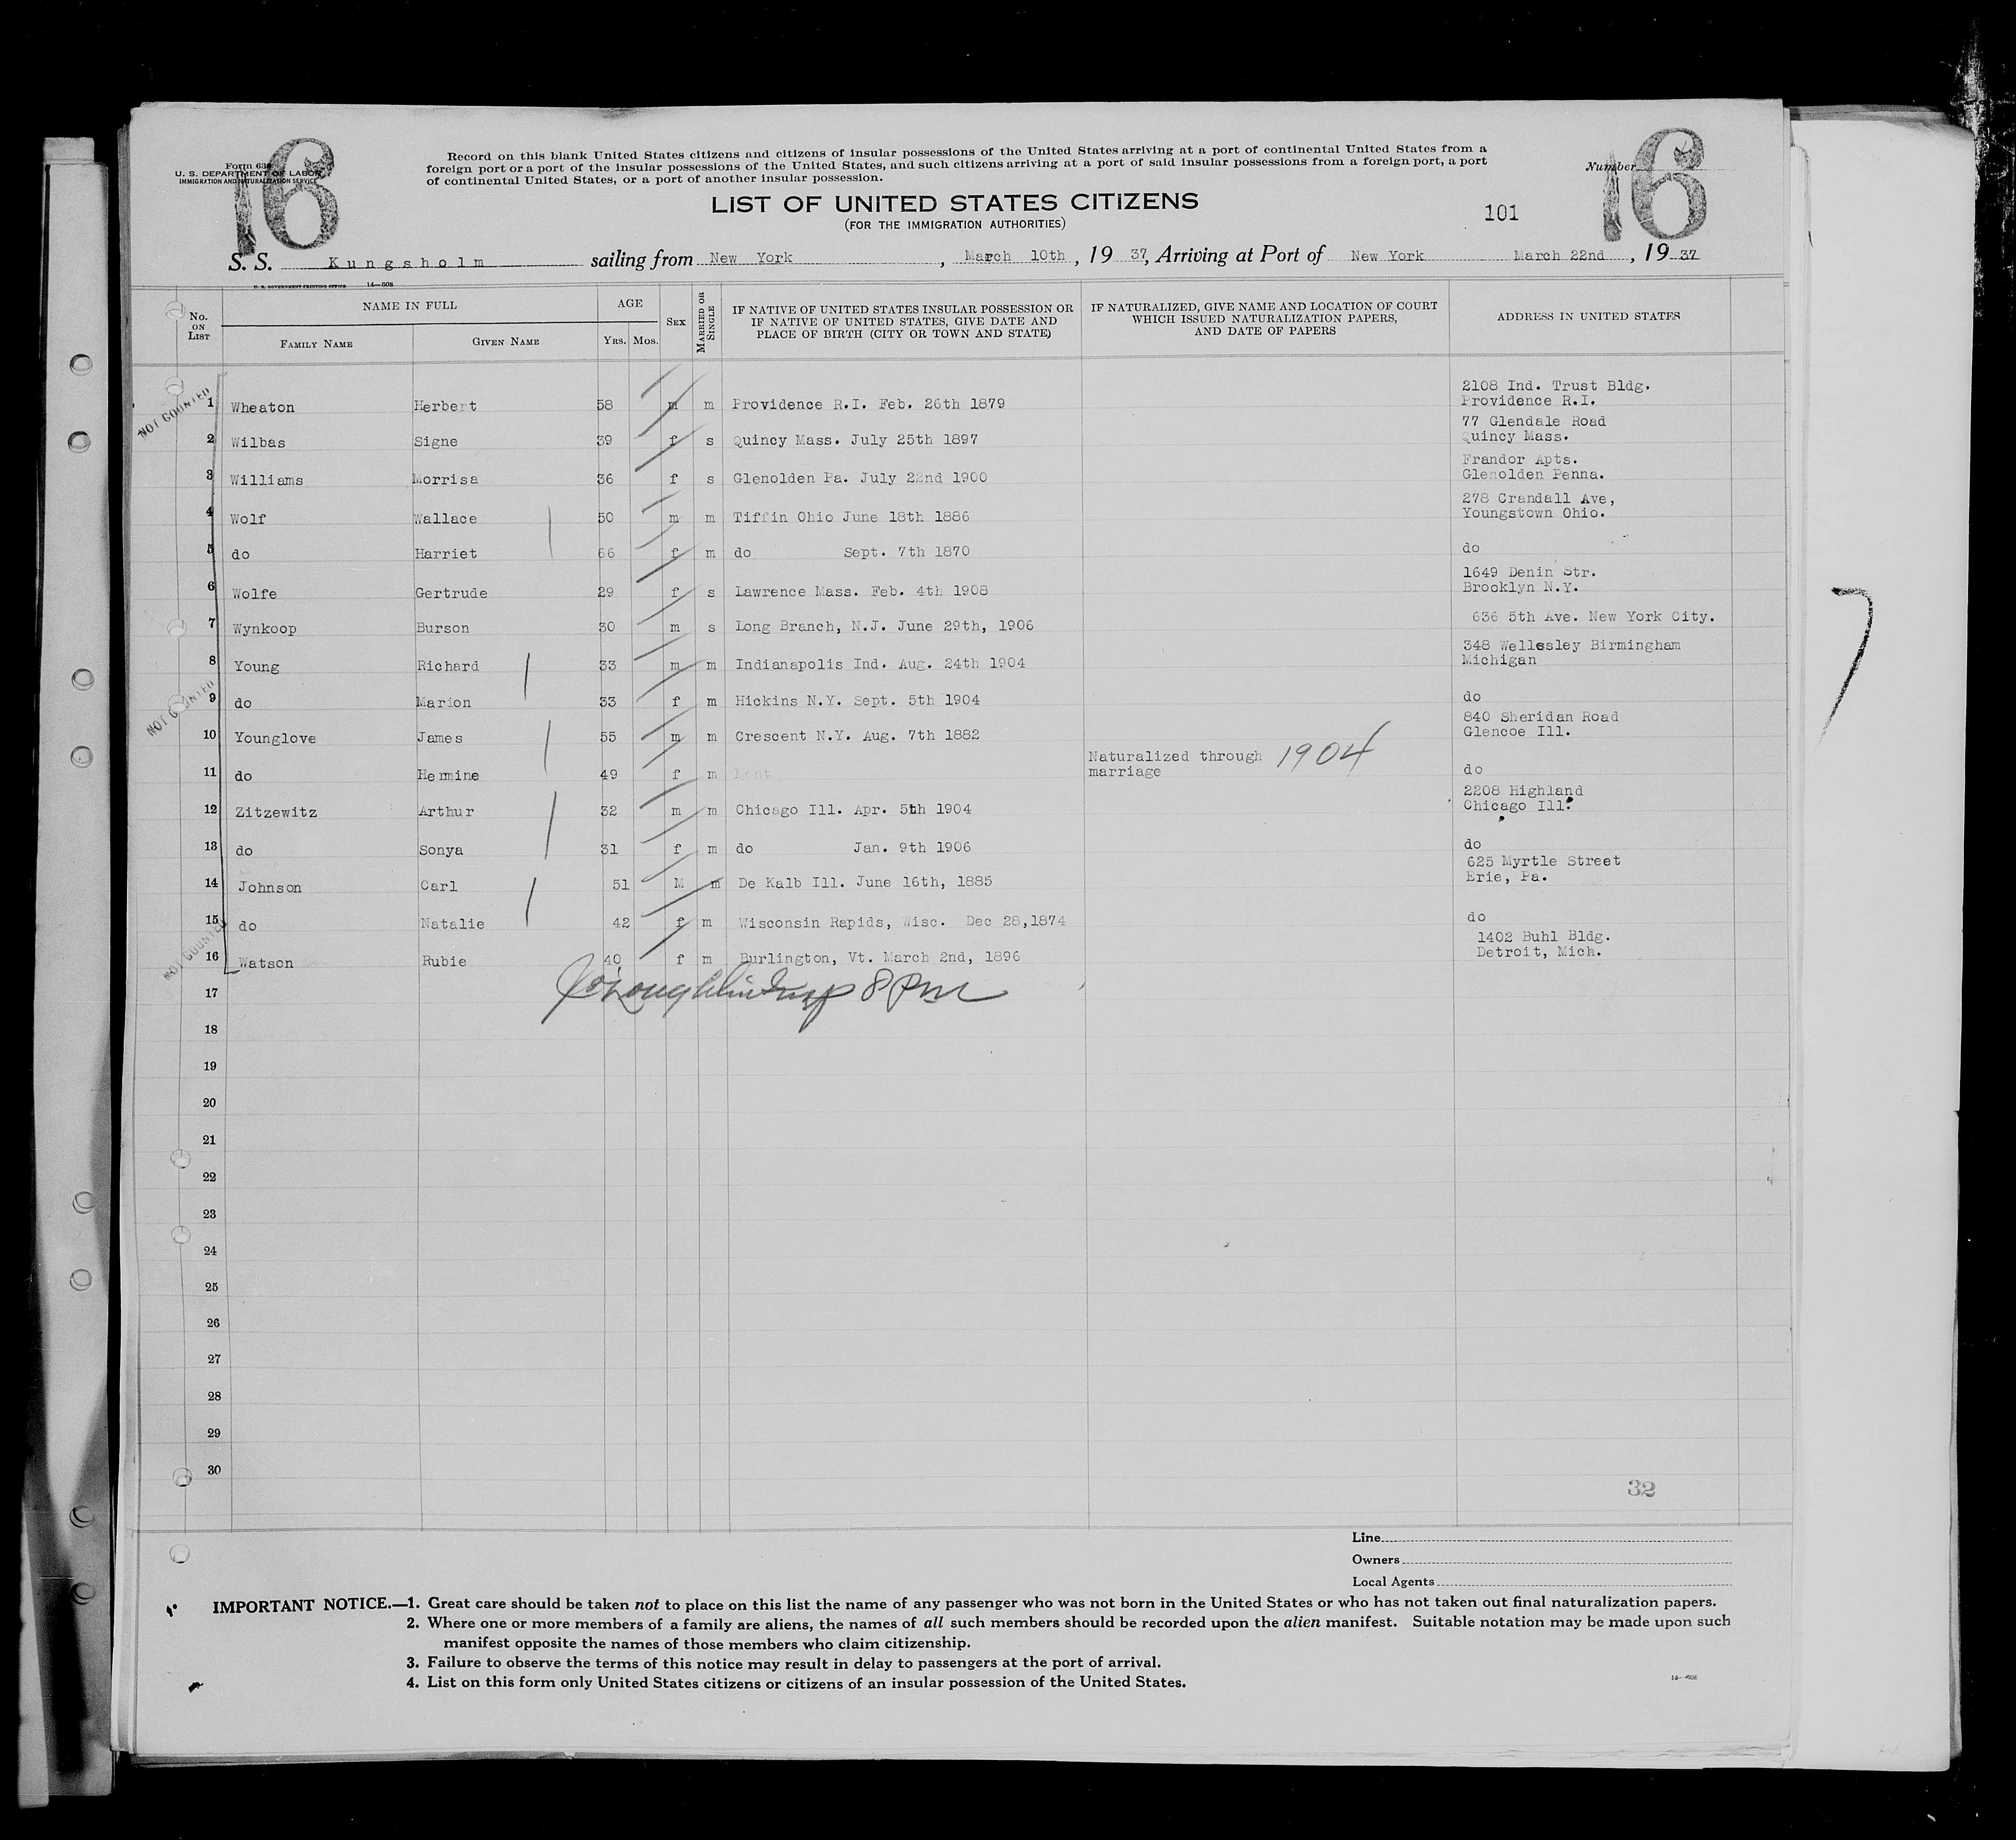 16
Form 630
U. S. DEPARTMENT OF LABOR
IMMIGRATION AND NATURALIZATION SERVICE
Record on this blank United States citizens and citizens of insular possessions of the United States arriving at a port of continental United States from a
foreign port or a port of the insular possessions of the United States, and such citizens arriving at a port of said insular possessions from a foreign port, a port
of continental United States, or a port of another insular possession.
Number 16
LIST OF UNITED STATES CITIZENS
(FOR THE IMMIGRATION AUTHORITIES)
101
S. S. Kungsholm sailing from New York, March 10th, 19 37, Arriving at Port of New York March 22nd, 19 37
U. S. GOVERNMENT PRINTING OFFICE 14—608
No. ON LIST
NAME IN FULL
FAMILY NAME
GIVEN NAME
AGE
YRS. MOS.
SEX
MARRIED OR SINGLE
IF NATIVE OF UNITED STATES INSULAR POSSESSION OR
IF NATIVE OF UNITED STATES, GIVE DATE AND
PLACE OF BIRTH (CITY OR TOWN AND STATE)
IF NATURALIZED, GIVE NAME AND LOCATION OF COURT
WHICH ISSUED NATURALIZATION PAPERS,
AND DATE OF PAPERS
ADDRESS IN UNITED STATES
NOT COUNTED
1 Wheaton Herbert 58 m m Providence R.I. Feb. 26th 1879 2108 Ind. Trust Bldg.
Providence R.I.
2 Wilbas Signe 39 f s Quincy Mass. July 25th 1897 77 Glendale Road
Quincy Mass.
3 Williams Morrisa 36 f s Glenolden Pa. July 22nd 1900 Frandor Apts.
Glenolden Penna.
4 Wolf Wallace 50 m m Tiffin Ohio June 18th 1886 278 Crandall Ave,
Youngstown Ohio.
5 do Harriet 66 f m do Sept. 7th 1870 do
6 Wolfe Gertrude 29 f s Lawrence Mass. Feb. 4th 1908 1649 Denin Str.
Brooklyn N.Y.
7 Wynkoop Burson 30 m s Long Branch, N.J. June 29th, 1906 636 5th Ave. New York City.
8 Young Richard 33 m m Indianapolis Ind. Aug. 24th 1904 348 Wellesley Birmingham
Michigan
NOT COUNTED
9 do Marion 33 f m Hickins N.Y. Sept. 5th 1904 do
10 Younglove James 55 m m Crescent N.Y. Aug. 7th 1882 840 Sheridan Road
Glencoe Ill.
11 do Hermine 49 f m Naturalized through marriage 1904 do
12 Zitzewitz Arthur 32 m m Chicago Ill. Apr. 5th 1904 2208 Highland
Chicago Ill.
13 do Sonya 31 f m do Jan. 9th 1906 do
14 Johnson Carl 51 M m De Kalb Ill. June 16th, 1885 625 Myrtle Street
Erie, Pa.
15 do Natalie 42 f m Wisconsin Rapids, Wisc. Dec 28,1874 do
NOT COUNTED
16 Watson Rubie 40 f m Burlington, Vt. March 2nd, 1896 1402 Buhl Bldg.
Detroit, Mich.
17 8 Pm
18
19
20
21
22
23
24
25
26
27
28
29
30
32
7
Line
Owners
Local Agents
IMPORTANT NOTICE.—1. Great care should be taken not to place on this list the name of any passenger who was not born in the United States or who has not taken out final naturalization papers.
2. Where one or more members of a family are aliens, the names of all such members should be recorded upon the alien manifest. Suitable notation may be made upon such
manifest opposite the names of those members who claim citizenship.
3. Failure to observe the terms of this notice may result in delay to passengers at the port of arrival.
4. List on this form only United States citizens or citizens of an insular possession of the United States.
14—608